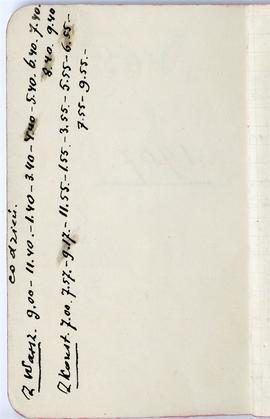 co dzień.
Z Warsz. 9.00 – 11.40. – 1.40 – 3.40 – 4.40 – 5.40. 6.40. 7.40.
8.40. 9.40
Z Konst. 7.00. 7.57. – 9.17. – 11.55 – 1.55. – 3.55 – 5.55 – 6.55 –
7.55 – 9.55. –